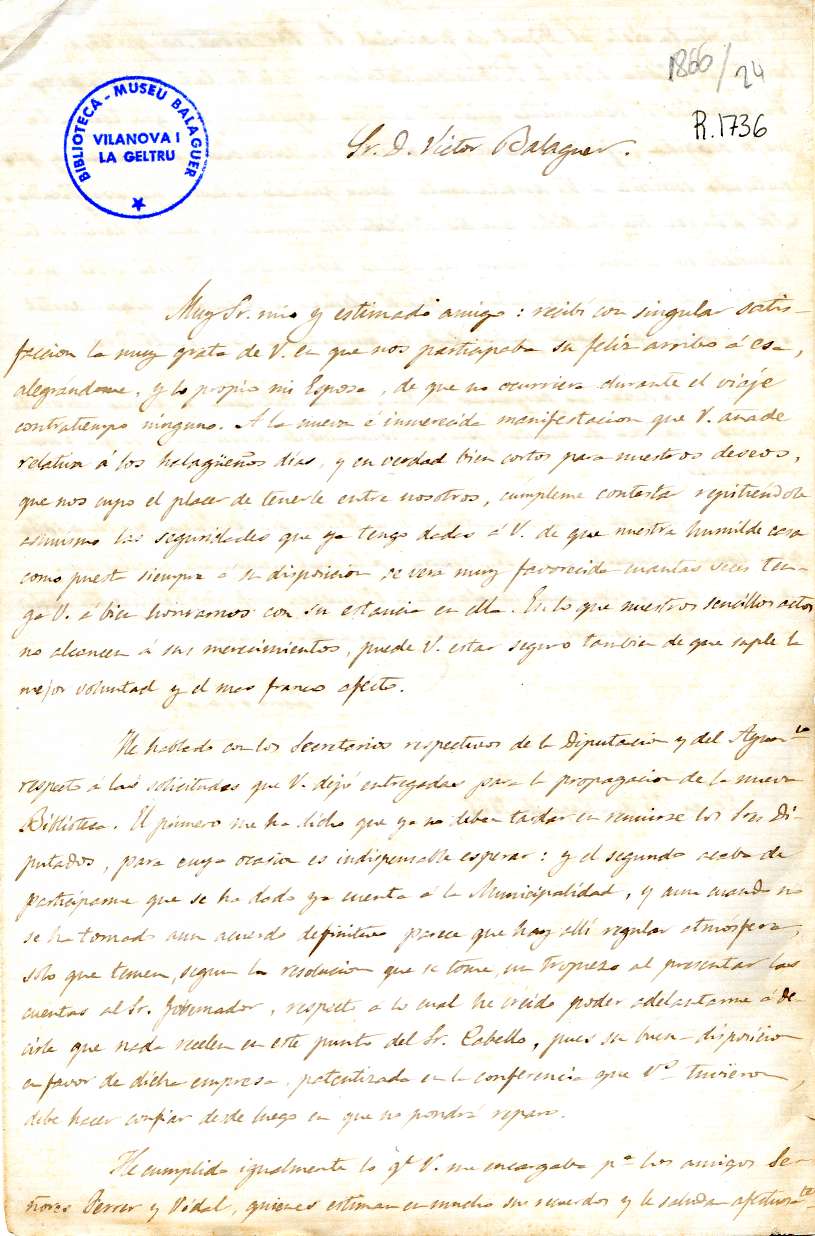 1866/24
R.1736
BIBLIOTECA - MUSEU BALAGUER
VILANOVA I
LA GELTRU
Sr. D. Victor Balaguer.
Muy Sr. mio y estimado amigo: recibí con singular satis-
faccion la muy grata de V. en que nos participaba su feliz arribo á esa,
alegrándome, y lo propio mi Esposa, de que no ocurriera durante el viaje
contratiempo ninguno. A la nueva é inmerecida manifestacion que V. añade
relativa á los halagüeños dias, y en verdad bien cortos para nuestros deseos,
que nos cupo el placer de tenerle entre nosotros, cúmpleme contestar repitiéndole
asimismo las seguridades que ya tengo dadas á V. de que nuestra humilde casa
como puesta siempre á su disposicion se verá muy favorecida cuantas veces ten-
ga V. á bien honrarnos con su estancia en ella. En lo que nuestros sencillos actos
no alcancen á sus merecimientos, puede V. estar seguro tambien de que suple la
mejor voluntad y el mas franco afecto.
He hablado con los Secretarios respectivos de la Diputacion y del Ayunto
respecto á las solicitudes que V. dejó entregadas para la propagacion de la nueva
Biblioteca. El primero me ha dicho que ya no deben tardar en reunirse los Sres Di-
putados, para cuya ocasion es indispensable esperar: y el segundo acaba de
participarme que se ha dado ya cuenta á la Municipalidad, y aun cuando no
se ha tomado aun acuerdo definitivo parece que hay allí regular atmósfera,
solo que temen, segun la resolucion que se tome, un tropiezo al presentar las
cuentas al Sr. Gobernador, respecto á lo cual he creido poder adelantarme á de-
cirle que nada recelen en este punto del Sr. Cabello, pues su buena disposicion
en favor de dicha empresa, patentizada en la conferencia que Vs tuvieron,
debe hacer confiar desde luego en que no pondrá reparo.
He cumplido igualmente lo qe V. me encargaba pa los amigos Se-
ñores Ferrer y Vidal, quienes estiman en mucho sus recuerdos y le saludan afectuosate